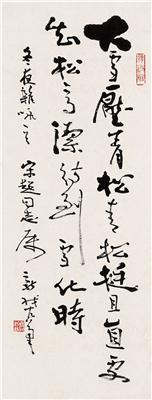 大雪壓青松青松挺且直要
知松高潔待到雪化時
冬夜雜詠之一 宋超同志属 新我左筆